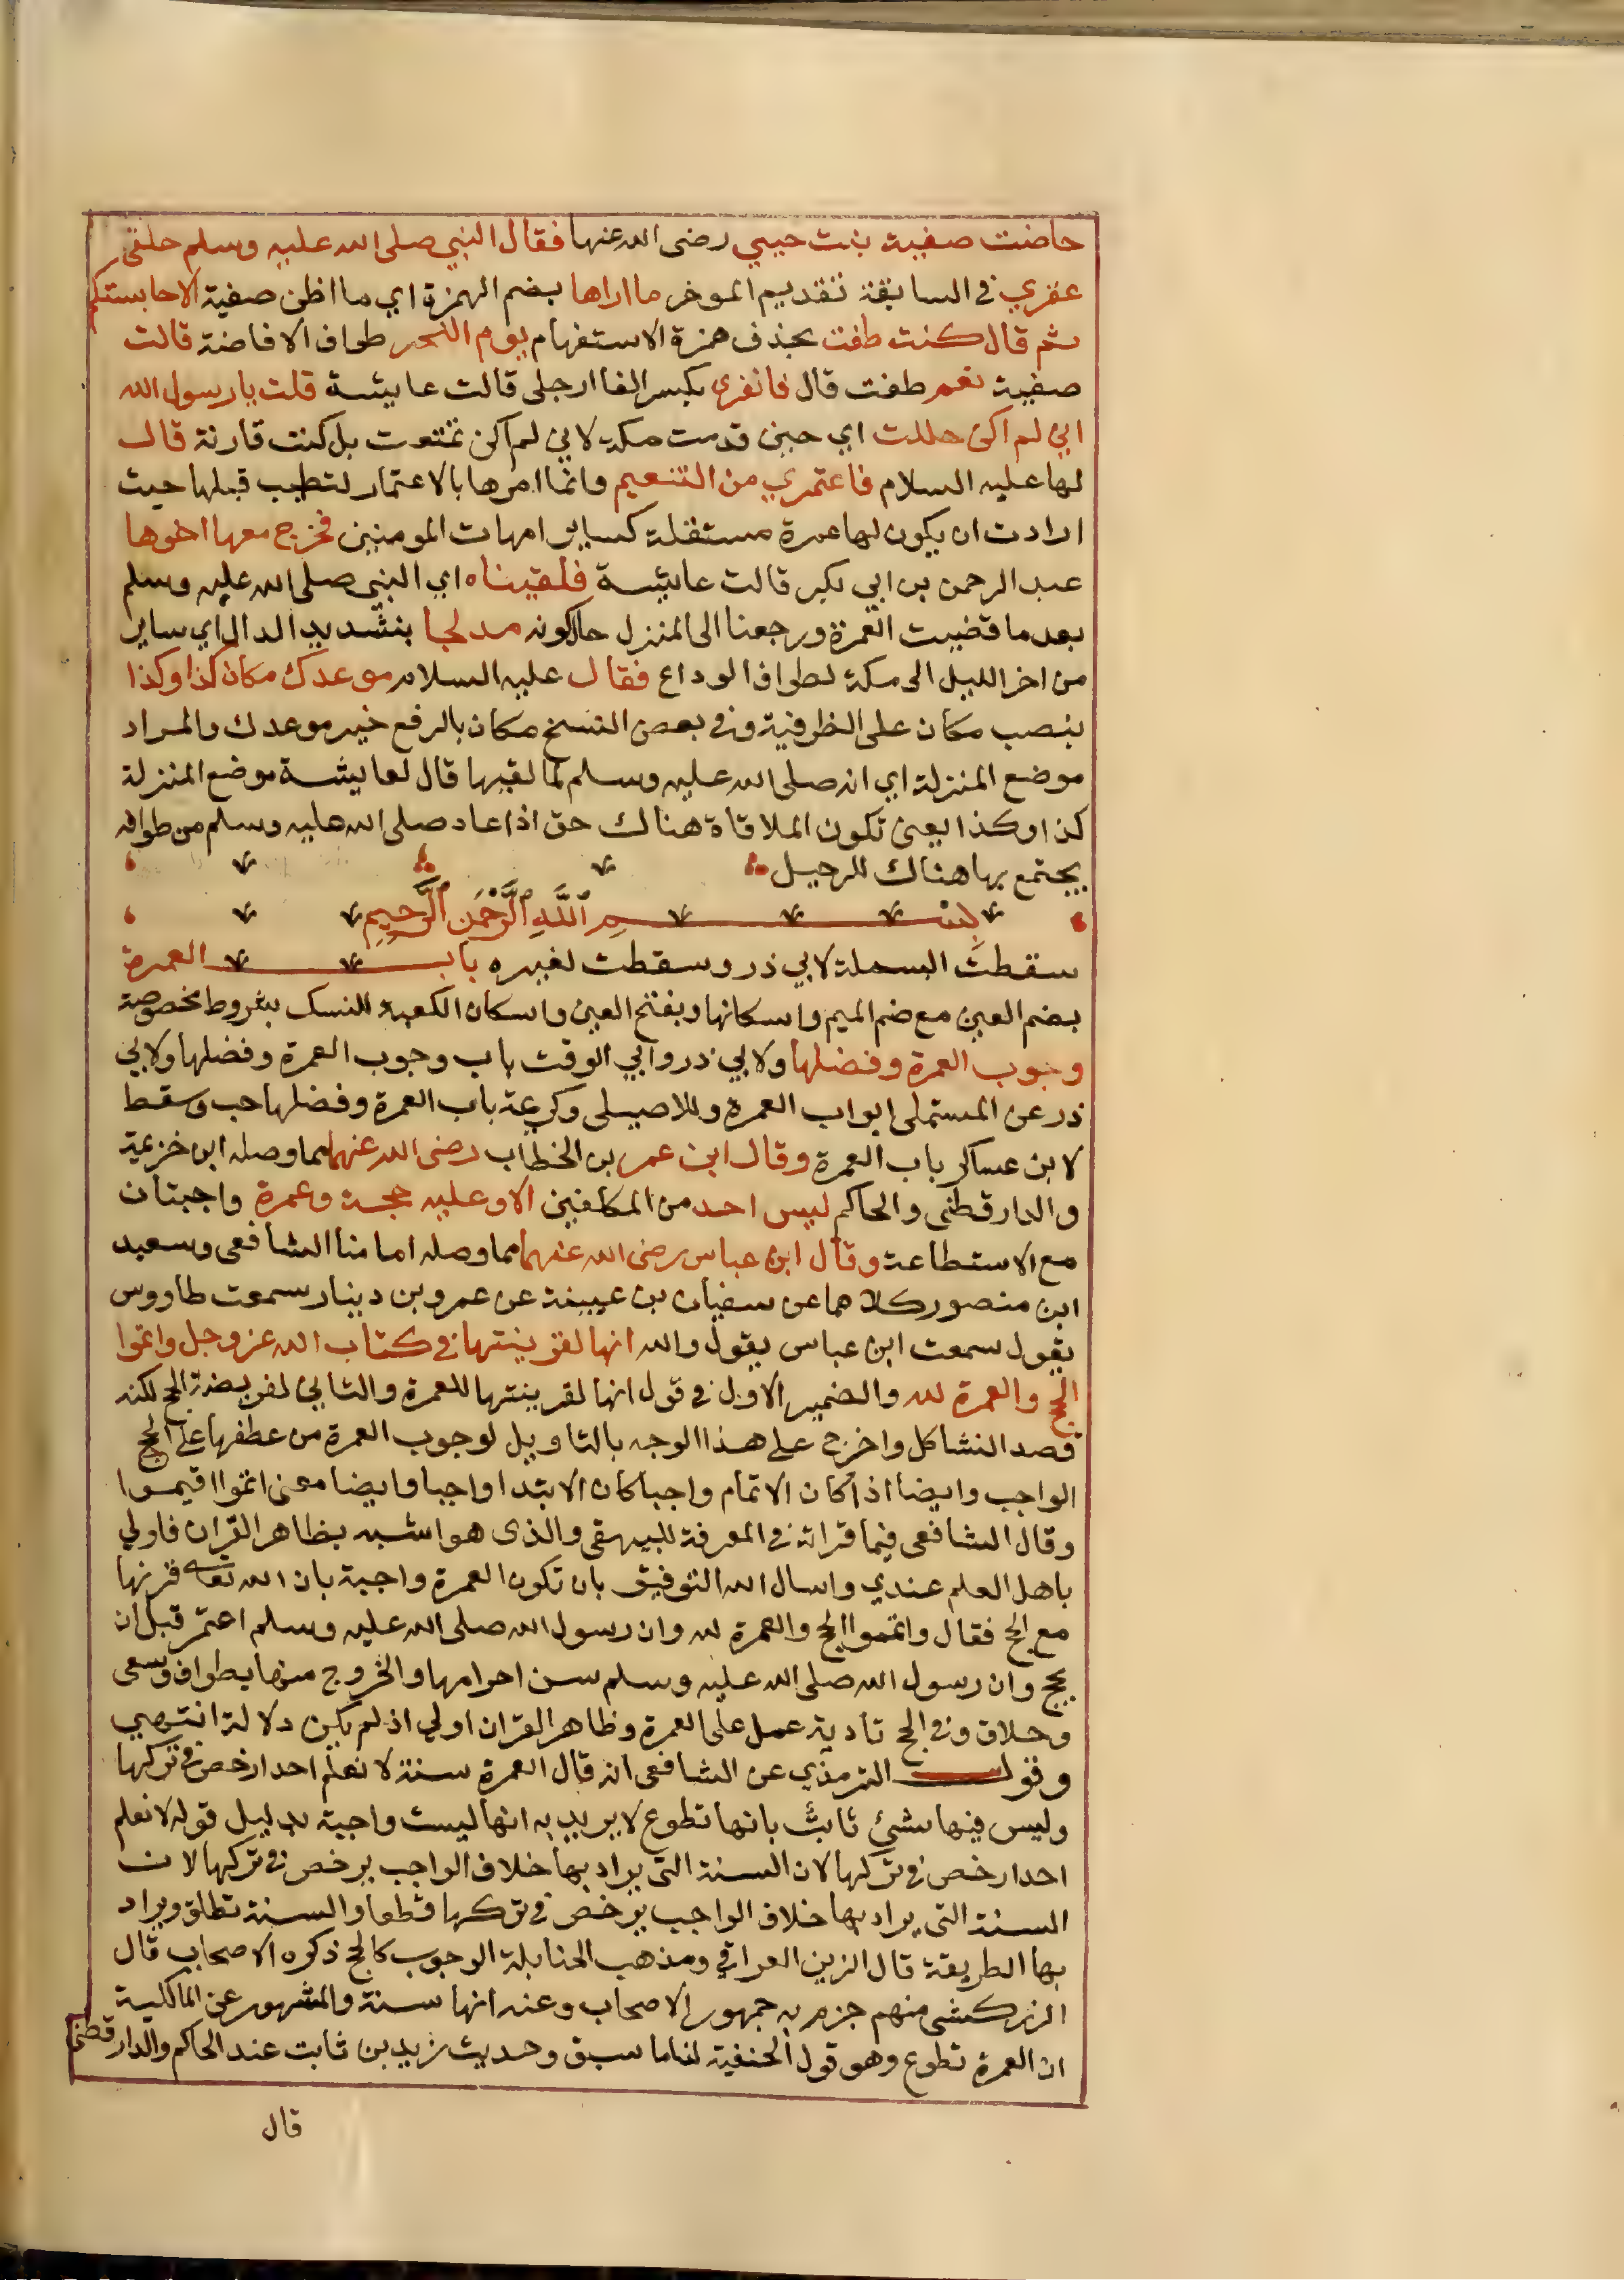 حاضت صفية بنت حيي رضى الله عنها فقال النبي صلى الله عليه وسلم حلقى
عقري في السابقة تقديم الموخر ما اراها بضم الهمزة اي ما اظن صفية الا حابستكم
ثم قال كنت طفت بحذف همزة الاستفهام يوم النحر طواف الافاضة قالت
صفية نعم طفت قال فانفري بكسر الفا ارجلى قالت عايشة قلت يا رسول الله
اني لم اكن حللت اي حين قدمت مكة لاني لم اكن تمتعت بل كنت قارنة قال
لها عليه السلام فاعتمري من التنعيم وانما امرها بالاعتمار لتطيب قبلها حيث
ارادت ان يكون لها عمرة مستقلة كساير امهات المومنين فخرج معها اخوها
عبد الرحمن بن ابي بكر قالت عايشة فلقيناه اي النبي صلى الله عليه وسلم
بعد ما قضيت العمرة ورجعنا الى المنزل حالكونه مدلجا بتشديد الدال اي ساير
من اخر الليل الى مكة لطواف الوداع فقال عليه السلام موعدك مكان كذا وكذا
بنصب مكان على الظرفية وفي بعض النسخ مكان بالرفع خبر موعدك والمراد
موضع المنزلة اي انه صلى الله عليه وسلم لما لقيها قال لعايشة موضع المنزلة
كذا وكذا يعني تكون الملاقاة هناك حتى اذا عاد صلى الله عليه وسلم من طوافه
يجتمع بها هناك للرحيل
بسم ٱللَّهِ ٱلرَّحْمَنِ ٱلرَّحِيمِ
سقطت البسملة لابي ذر وسقطت لغيره باب العمرة
بضم العين مع ضم الميم واسكانها وبفتح العين واسكان الكعبة للنسك بشروط مخصوصة
وجوب العمرة وفضلها ولابي ذر وابي الوقت باب وجوب العمرة وفضلها ولابي
ذر عن المستملى ابواب العمرة وللاصيلى وكريمة باب العمرة وفضلها حب وسقط
لابن عساكر باب العمرة وقال ابن عمر بن الخطاب رضى الله عنهما مما وصله ابن خزيمة
والدارقطنى والحاكم ليس احد من المكلفين الا وعليه حجة وعمرة واجبتان
مع الاستطاعة وقال ابن عباس رضى الله عنهما مما وصله امامنا الشافعى وسعيد
ابن منصور كلاهما عن سفيان بن عيينة عن عمرو بن دينار سمعت طاووس
يقول سمعت ابن عباس يقول والله انها لقرينتها في كتاب الله عز وجل واتموا
الحج والعمرة لله والضمير الاول في قول انها لقرينتها للعمرة والثاني لفريضة الحج لكنه
قصد التشاكل واخرج على هذا الوجه بالتاويل لوجوب العمرة من عطفها على الحج
الواجب وايضا اذا كان الاتمام واجبا كان الابتدا واجبا وايضا معنى اتموا اقيموا
وقال الشافعى فيما قراته في المعرفة للبيهقى والذى هو اشبه بظاهر القران فاولي
باهل العلم عندي واسال الله التوفيق بان تكون العمرة واجبة بان الله تعالى قرنها
مع الحج فقال واتمموا الحج والعمرة لله وان رسول الله صلى الله عليه وسلم اعتمر قبل ان
يحج وان رسول الله صلى الله عليه وسلم سن احرامها والخروج منها بطواف وسعى
وحلاق وفي الحج تادية عمل على العمرة وظاهر القران اولي اذ لم يكن دلالة انتهى
وقول الترمذي عن الشافعى انه قال العمرة سنة لا نعلم احدا رخص في تركها
وليس فيها شئ ثابت بانها تطوع لا يريد به انها ليست واجبة بدليل قوله لا نعلم
احدا رخص في تركها لان السنة التي يراد بها خلاف الواجب يرخص في تركها لان
السنة التي يراد بها خلاف الواجب يرخص في تركها قطعا والسنة تطلق ويراد
بها الطريقة قال الزين العراقي ومذهب الحنابلة الوجوب كالحج ذكره الاصحاب قال
الزركشى منهم جزم به جمهور الاصحاب وعنه انها سنة والمشهور عن المالكية
ان العمرة تطوع وهو قول الحنفية لنا ما سبق وحديث زيد بن ثابت عند الحاكم والدارقطنى
قال